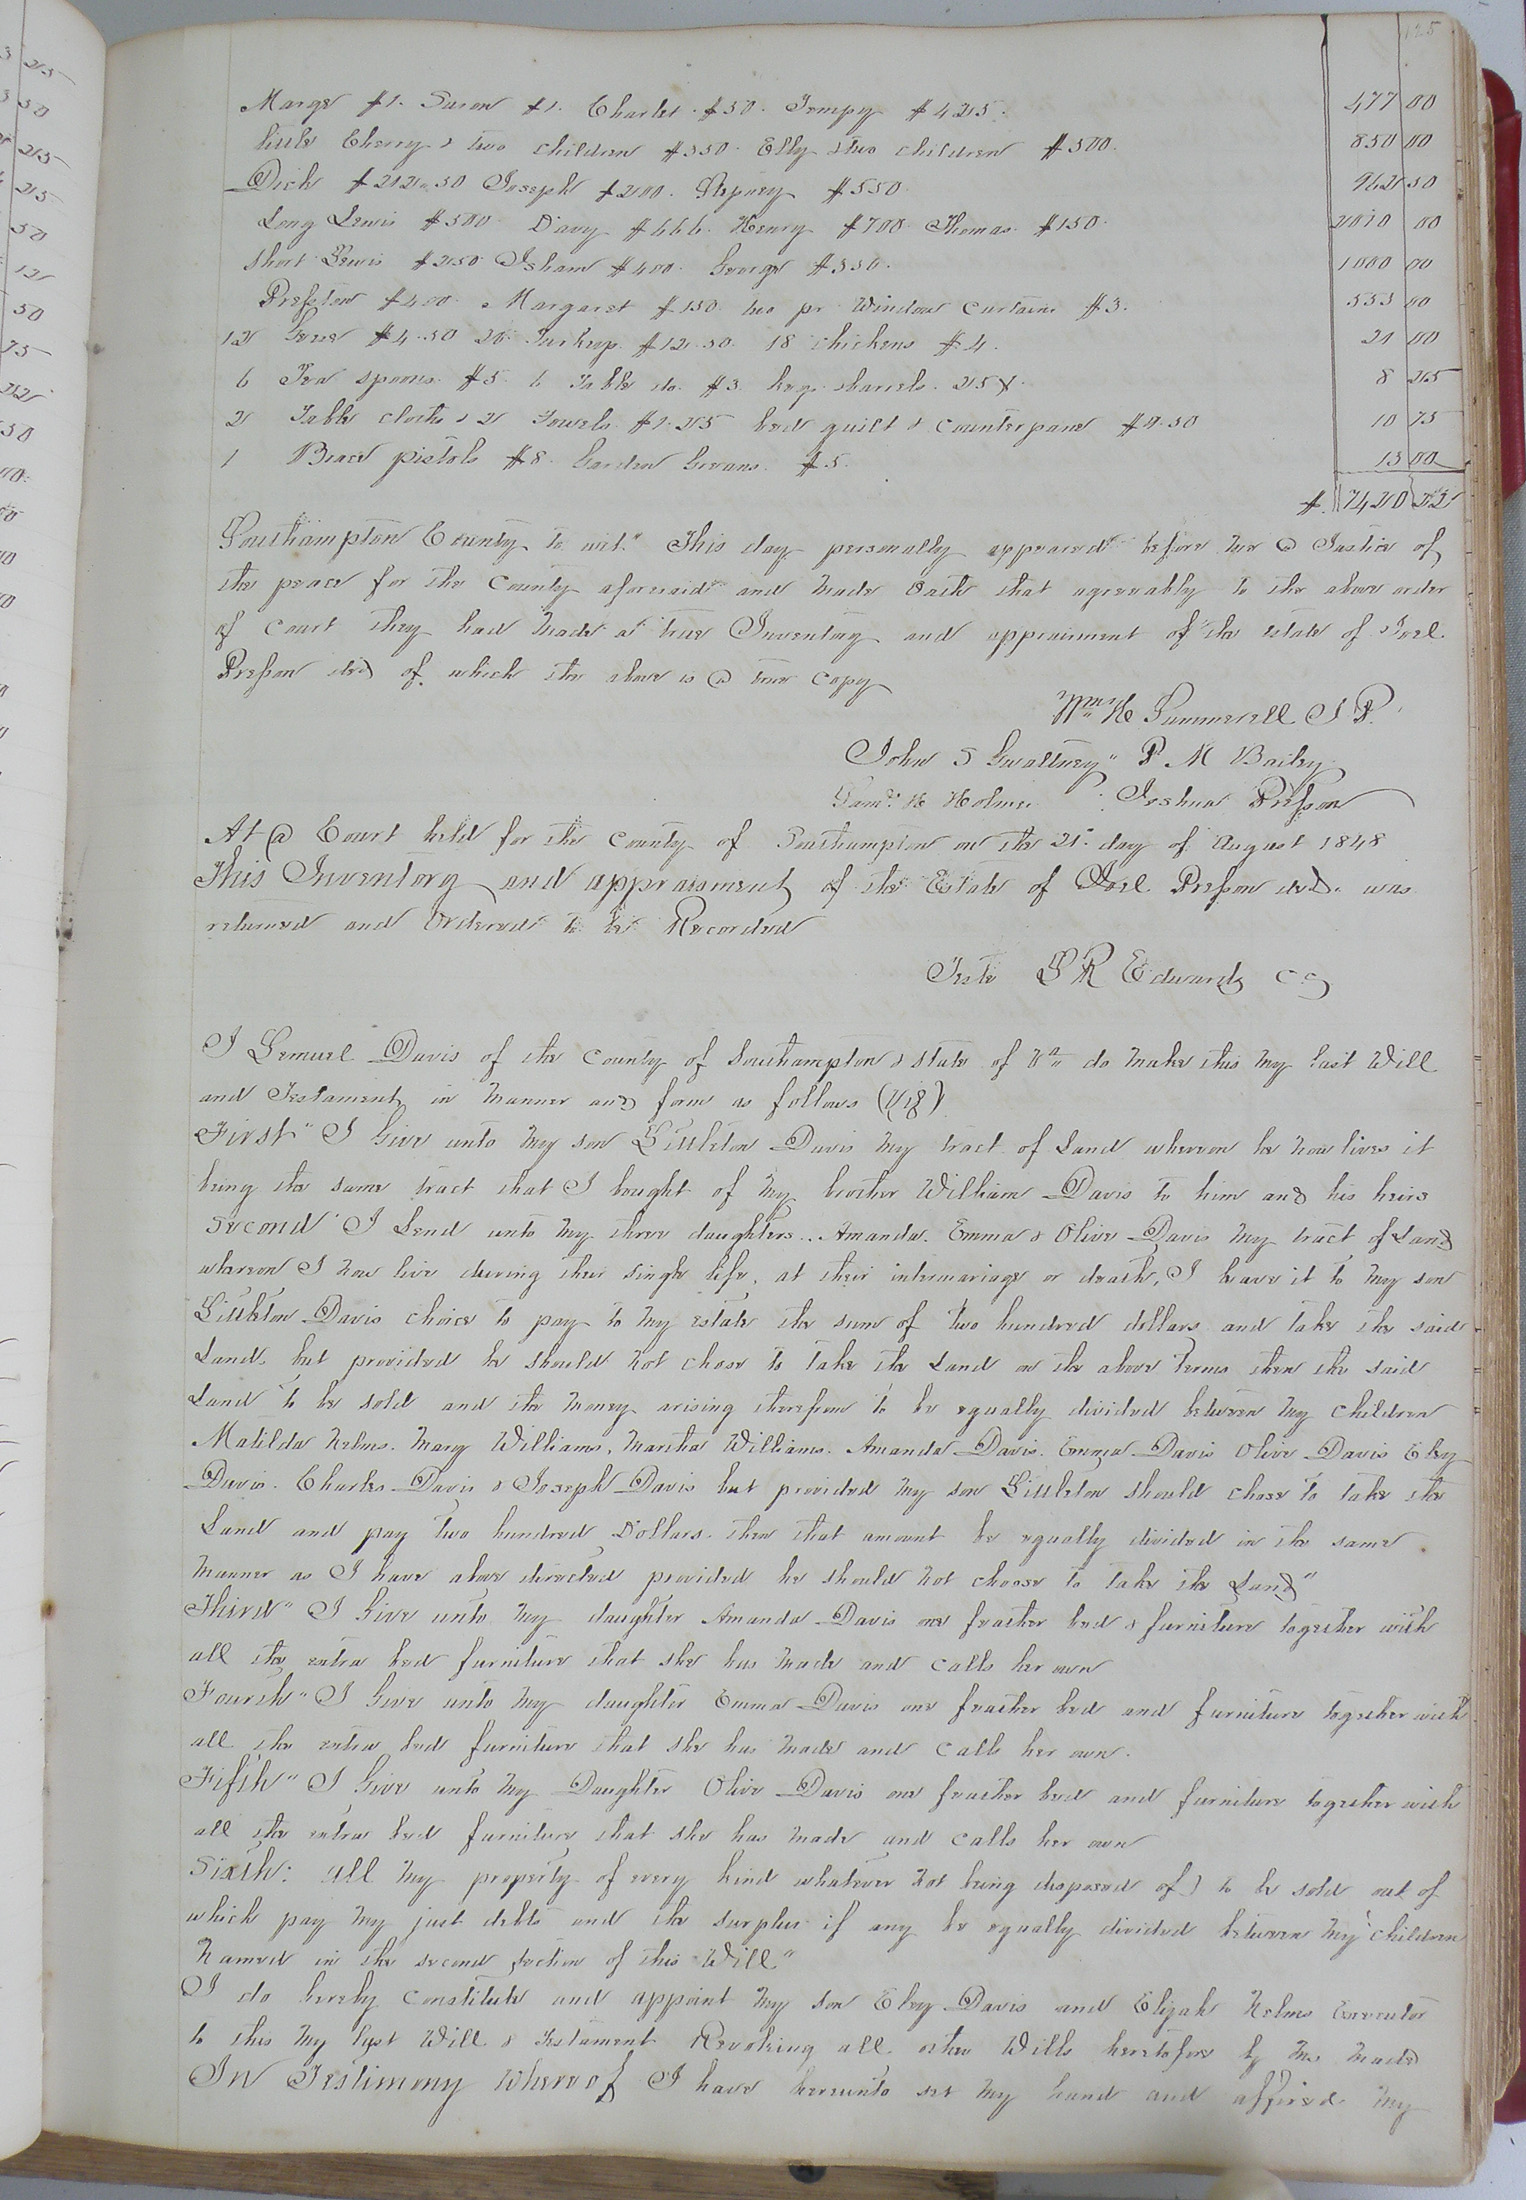 125
Marge $1. Saron $1. Charlet. $50. Tempy $425. 477 00
little Cherry & two children $350. Elly & two children $500. 850 00
Dick $212.50 Joseph $200. Stepney $550. 962 50
Long Lewis $500 Davy $666. Henry $700. Thomas $150. 2010 00
Short Lewis $250 Isham $400. George $350. 1000 00
Presston $400. Margaret $150 two pr. Window Curtains $3. 553 00
12 Geese $4.50 20 Turkeys $12.50. 18 chickens $4. 21 00
6 Tea spoons. $5. 6 Table do. $3. kegs & barrels. 25 8 25
2 Table cloths & 2 Towels. $1.25 bed quilt & counterpane $9.50 10 75
1 Brace pistols $8. Garden $5. 13 00
$. 7420 52
Southampton County to wit." This day personally appeared before me a Justice of
the peace for the County aforesaid and made Oath that agreeably to the above order
of Court they had made a true Inventory and appraisment of the estate of Joel.
Presson decd of which the above is a true copy
Wm. H Summerell J P.
John S Gwaltney" P. M Bailey
Saml. H Holmes Joshua Presson
At a Court held for the County of Southampton on the 21st day of August 1848
This Inventory and appraisment of the Estate of Joel Presson decd. was
returned and Ordered to be Recorded
Teste L R Edwards C C
I Lemuel Davis of the County of Southampton & State of Va do make this my last Will
and Testament in manner and form as follows (Viz)
First" I Give unto my son Littleton Davis my tract of Land whereon he now lives it
being the same tract that I bought of my brother William Davis to him and his heirs
Second I Lend unto my three daughters.. Amanda. Emma & Olive Davis my tract of Land
whereon I now live during their single life, at their intermariage or death, I leave it to my son
Littleton Davis choice to pay to my estate the sum of two hundred dollars and take the said
Land. but provided he should not chose to take the Land on the above terms then the said
Land to be sold and the money arising therefrom to be equally divided between my children
Matilda Nelms. Mary Williams, Martha Williams. Amanda Davis. Emma Davis Olive Davis Eley
Davis. Charles Davis & Joseph Davis but provided my son Littleton should chose to take the
Land and pay two hundred Dollars. then that amount be equally divided in the same
manner as I have above directed provided he should not choose to take the Land"
Third" I Give unto my daughter Amanda Davis one feather bed & furniture together with
all the extra bed furniture that she has made and calls her own
Fourth" I Give unto my daughter Emma Davis one feather bed and furniture together with
all the extra bed furniture that she has made and calls her own.
Fifth" I Give unto my Daughter Olive Davis one feather bed and furniture together with
all the extra bed furniture that she has made and calls her own
Sixth: all my property of every kind whatever not being disposed of) to be sold out of
which pay my just debts and the surplus if any be equally divided between my children
Named in the second section of this Will"
I do hereby constitute and appoint my son Eley Davis and Elijah Nelms Executor
to this my last Will & Testament Revoking all other Wills heretofore by me made
In Testimony Whereof I have hereunto set my hand and affixed my